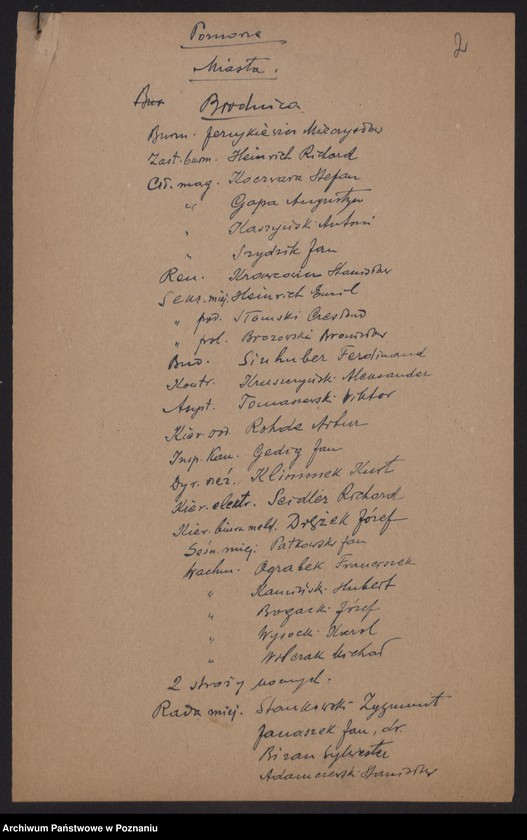 2
Pomorze
Miasta.
Bur
Brodnica
Burm. Jerzykiewicz Mieczysław
Zast. burm. Heinrich Richard
Cił. mag. Koczwara Stefan
" Gapa Augustyn
" Kaszyński Antoni
" Szydzik Jan
Ren. Krawcowicz Stanisław
Sekr. miej. Heinrich Emil
" pod. Słomski Czesław
" pol. Brozowski Bronisław
Bud. Sinhuber Ferdinand
Kontr. Kruszczyński Aleksander
Asyst. Tomaszewski Wiktor
Kier. wod. Rohde Artur
Insp. kan. Gedig Jan
Dyr. rzeź. Klimmek Kurt
Kier. elektr. Seidler Richard
Kier. biura meld. Drążek Józef
Leśn. miej. Patkowski Jan
Wachm. Ograbek Franciszek
" Kamiński Hubert
" Bogacki Józef
" Wysocki Karol
" Wolczak Michał
2 stróży nocnych.
Rada miej. Stankowski Zygmunt
Janaszek Jan, dr.
Bizan Sylwester
Adamczewski Stanisław
Archiwum Państwowe w Poznaniu